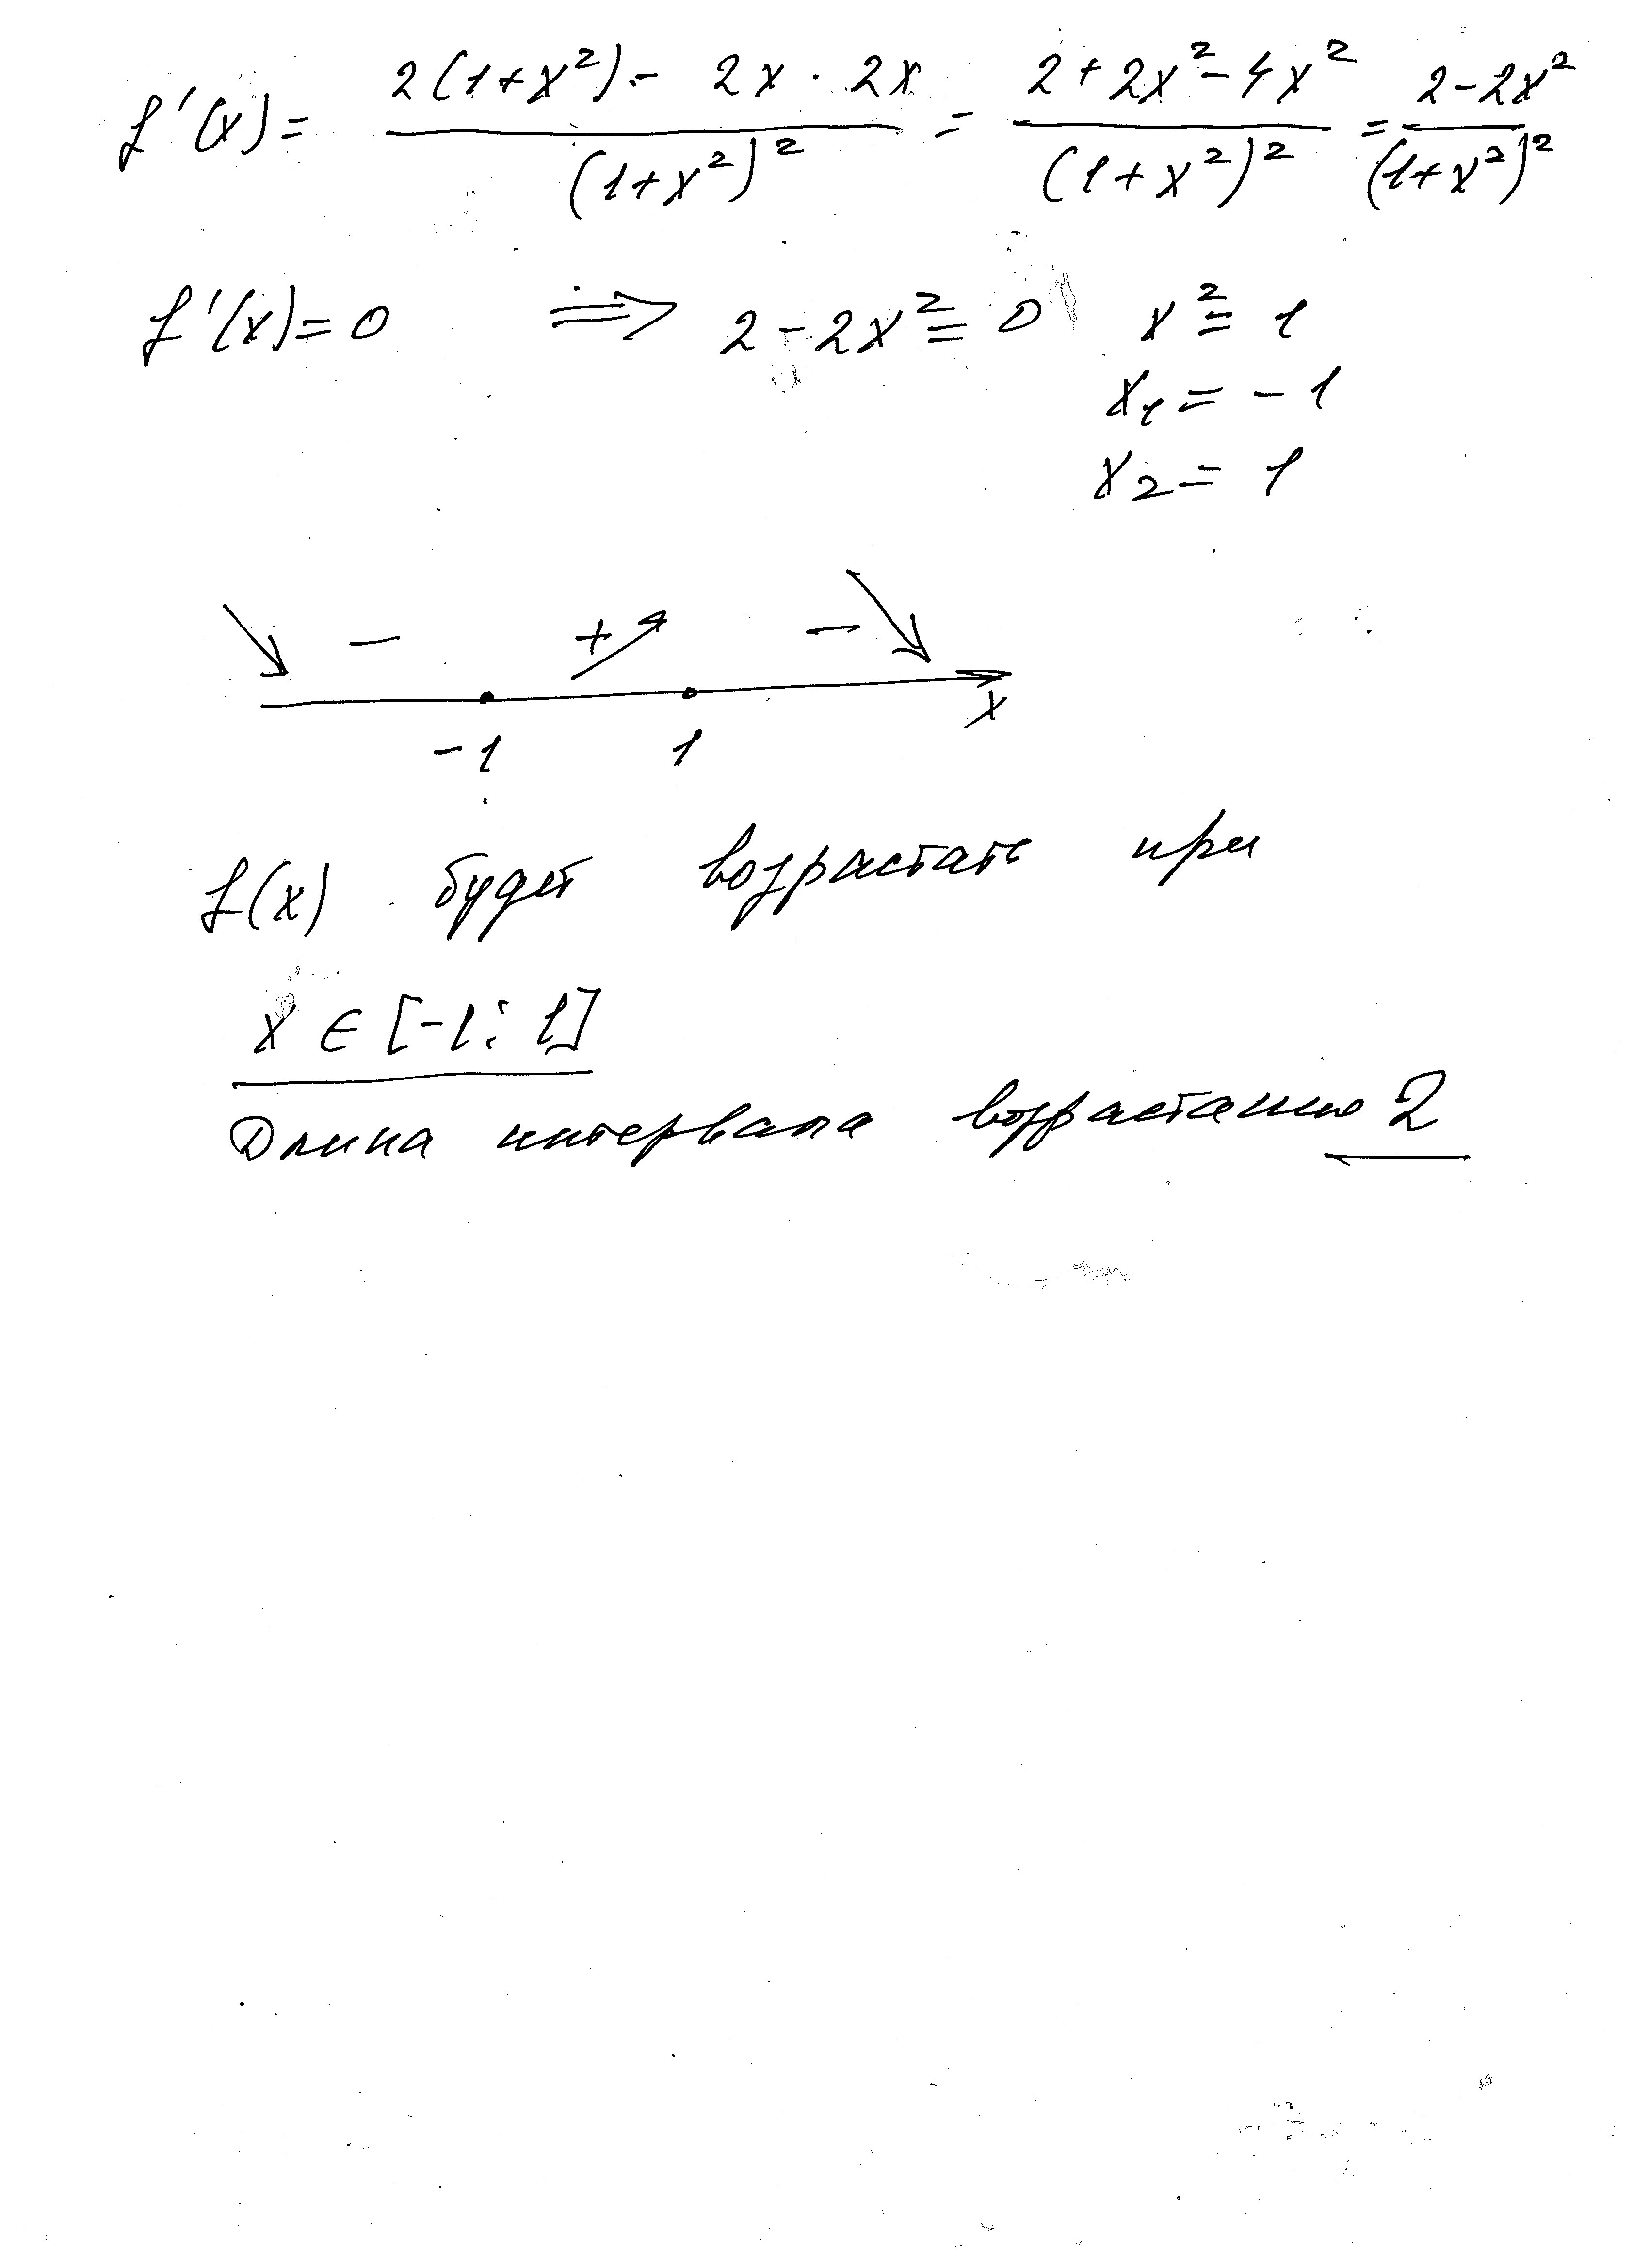 f'(x) = (2(1+x²) - 2x · 2x)/(1+x²)² = (2+2x²-4x²)/(1+x²)² = (2-2x²)/(1+x²)²
f'(x)=0 ⇒ 2-2x²=0 x²=1
x₁ = -1
x₂ = 1
- + -
-1 1 x
f(x) будет возрастать при
x ∈ [-1; 1]
Длина интервала возрастания 2